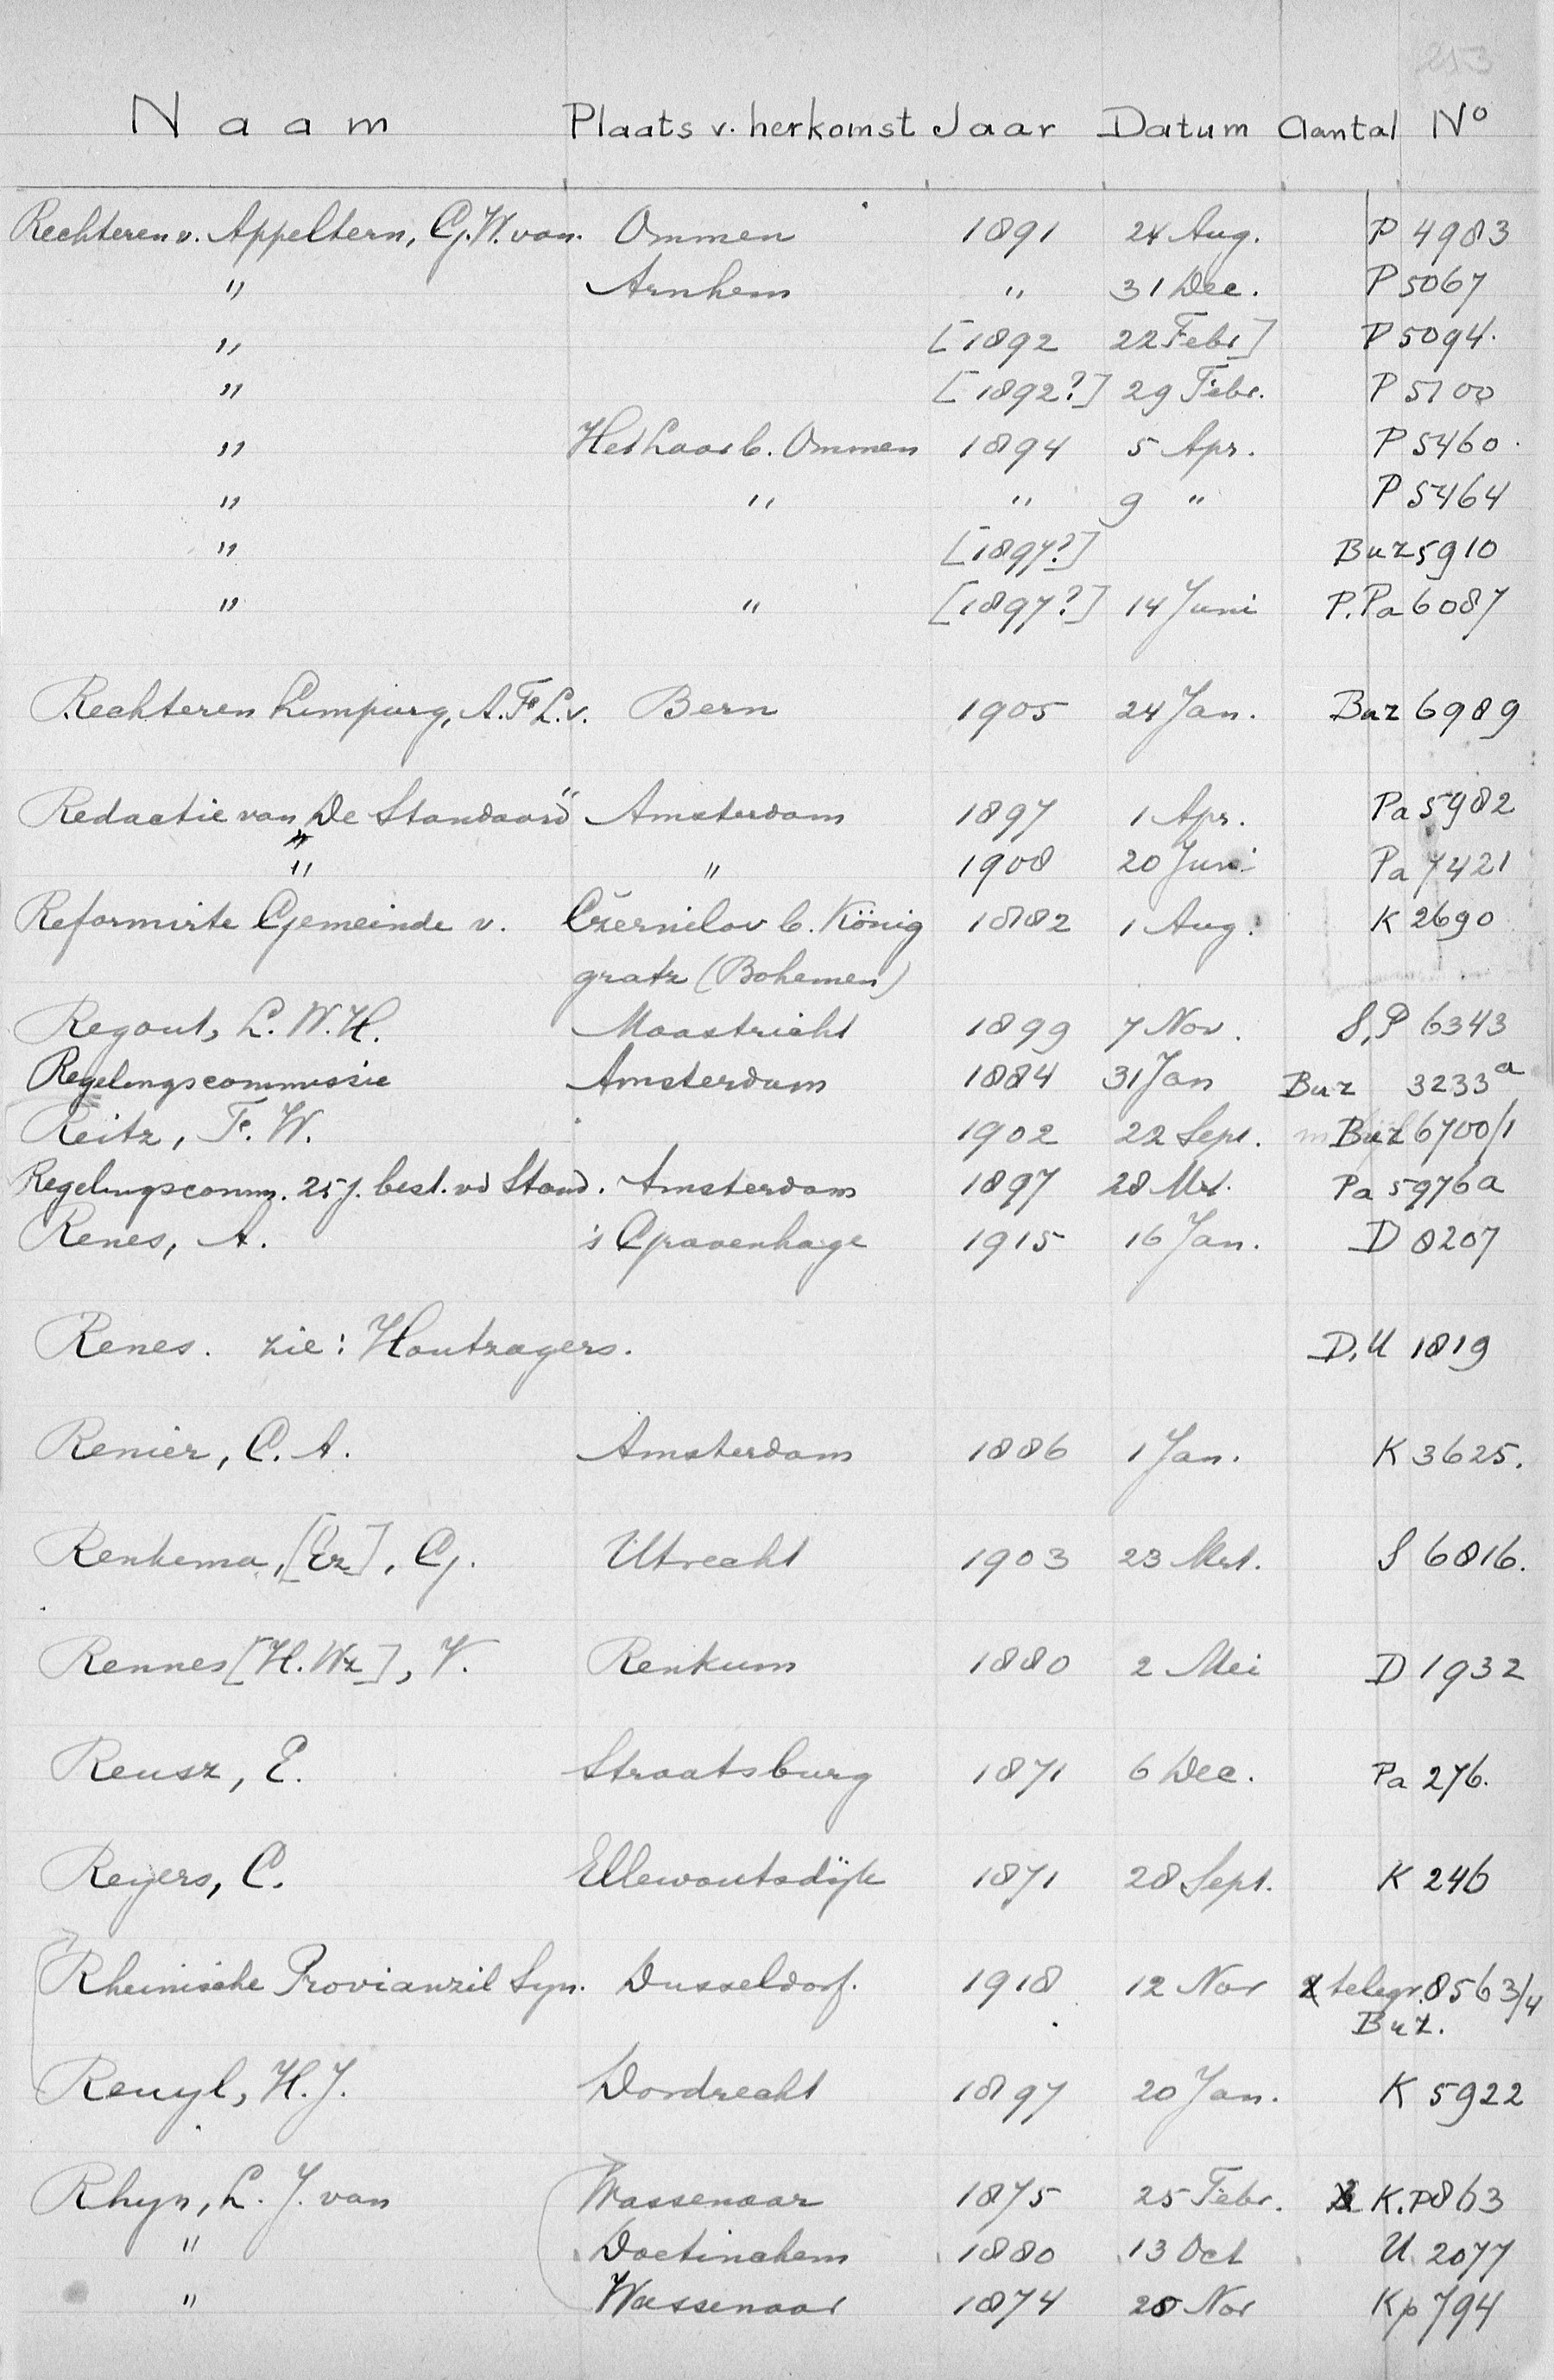 213
Naam Plaats v. herkomst Jaar Datum Aantal No
Rechteren v. Appeltern, G.W. van. Ommen 1891 24 Aug. P 4983
" Arnhem " 31 Dec. P 5067
" [1892 22 Febr] P 5094.
" [1892?] 29 Febr. P 5100
" Het Laar b. Ommen 1894 5 Apr. P 5460.
" " " 9 " P 5464
" [1897?] Buz 5910
" " [1897?] 14 Juni P.Pa 6087
Rechteren Limpurg, A.F.L.v. Bern 1905 24 Jan. Buz 6989
Redactie van „De Standaard" Amsterdam 1897 1 Apr. Pa 5982
" " 1908 20 Juni Pa 7421
Reformirte Gemeinde v. Czernilov b. König 1882 1 Aug. K 2690
gratz (Bohemen)
Regout, L.W.H. Maastricht 1899 7 Nov. S,P 6343
Regelingscommissie Amsterdam 1884 31 Jan Buz 3233a
Reitz, F.W. 1902 22 Sept. Buz 6700/1
Regelingscomm. 25 j. best. vd Stand. Amsterdam 1897 28 Mrt. Pa 5976a
Renes, A. 's Gravenhage 1915 16 Jan. D 8207
Renes. zie: Houtzagers. D,U 1819
Renier, C.A. Amsterdam 1886 1 Jan. K 3625.
Renkema, [Ez], G. Utrecht 1903 23 Mrt. S 6816.
Rennes [H.Wz], V. Renkum 1880 2 Mei D 1932
Reusz, E. Straatsburg 1871 6 Dec. Pa 276.
Reyers, C. Ellewoutsdijk 1871 28 Sept. K 246
Rheinische Provianzil Syn. Dusseldorf. 1918 12 Nov 2 telegr. 8563/4
Buz.
Reuyl, H.J. Dordrecht 1897 20 Jan. K 5922
Rhyn, L.J. van Wassenaar 1875 25 Febr. K.P 863
" Doetinchem 1880 13 Oct U 2077
" Wassenaar 1874 28 Nov Kp 794